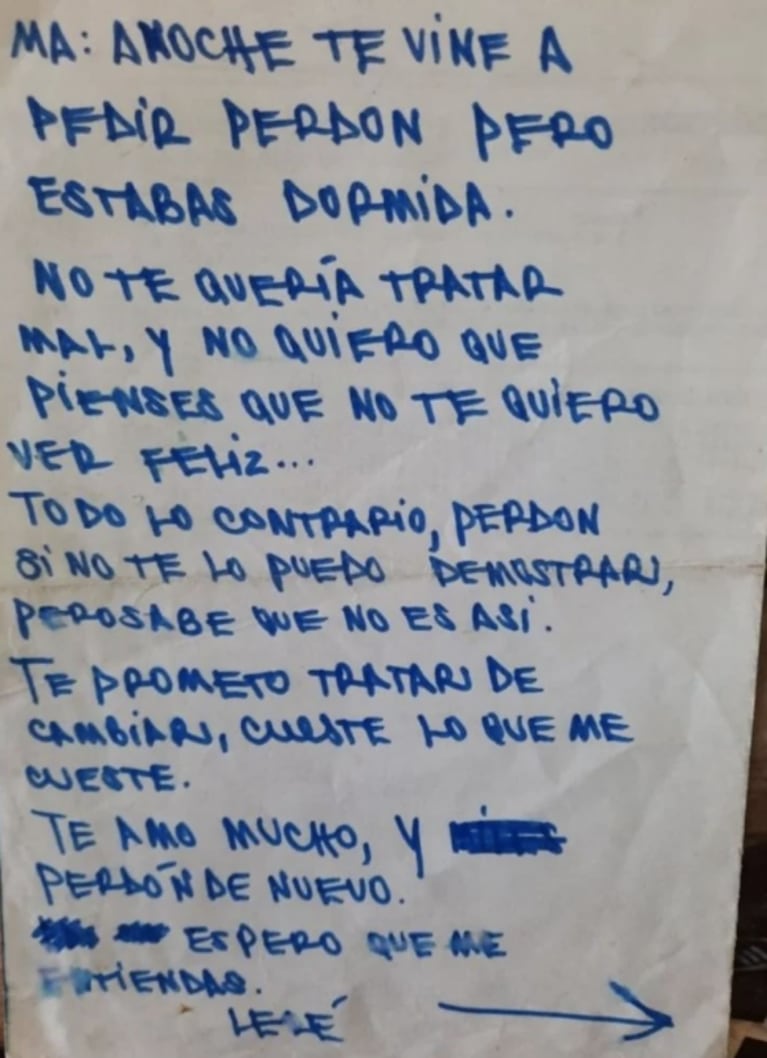 MA: ANOCHE TE VINE A
PEDIR PERDON PERO
ESTABAS DORMIDA.
NO TE QUERÍA TRATAR
MAL, Y NO QUIERO QUE
PIENSES QUE NO TE QUIERO
VER FELIZ...
TODO LO CONTRARIO, PERDON
SI NO TE LO PUEDO DEMOSTRAR,
PERO SABE QUE NO ES ASI.
TE PROMETO TRATAR DE
CAMBIAR, CUESTE LO QUE ME
CUESTE.
TE AMO MUCHO, Y
PERDÓN DE NUEVO.
ESPERO QUE ME
ENTIENDAS.
LELÉ